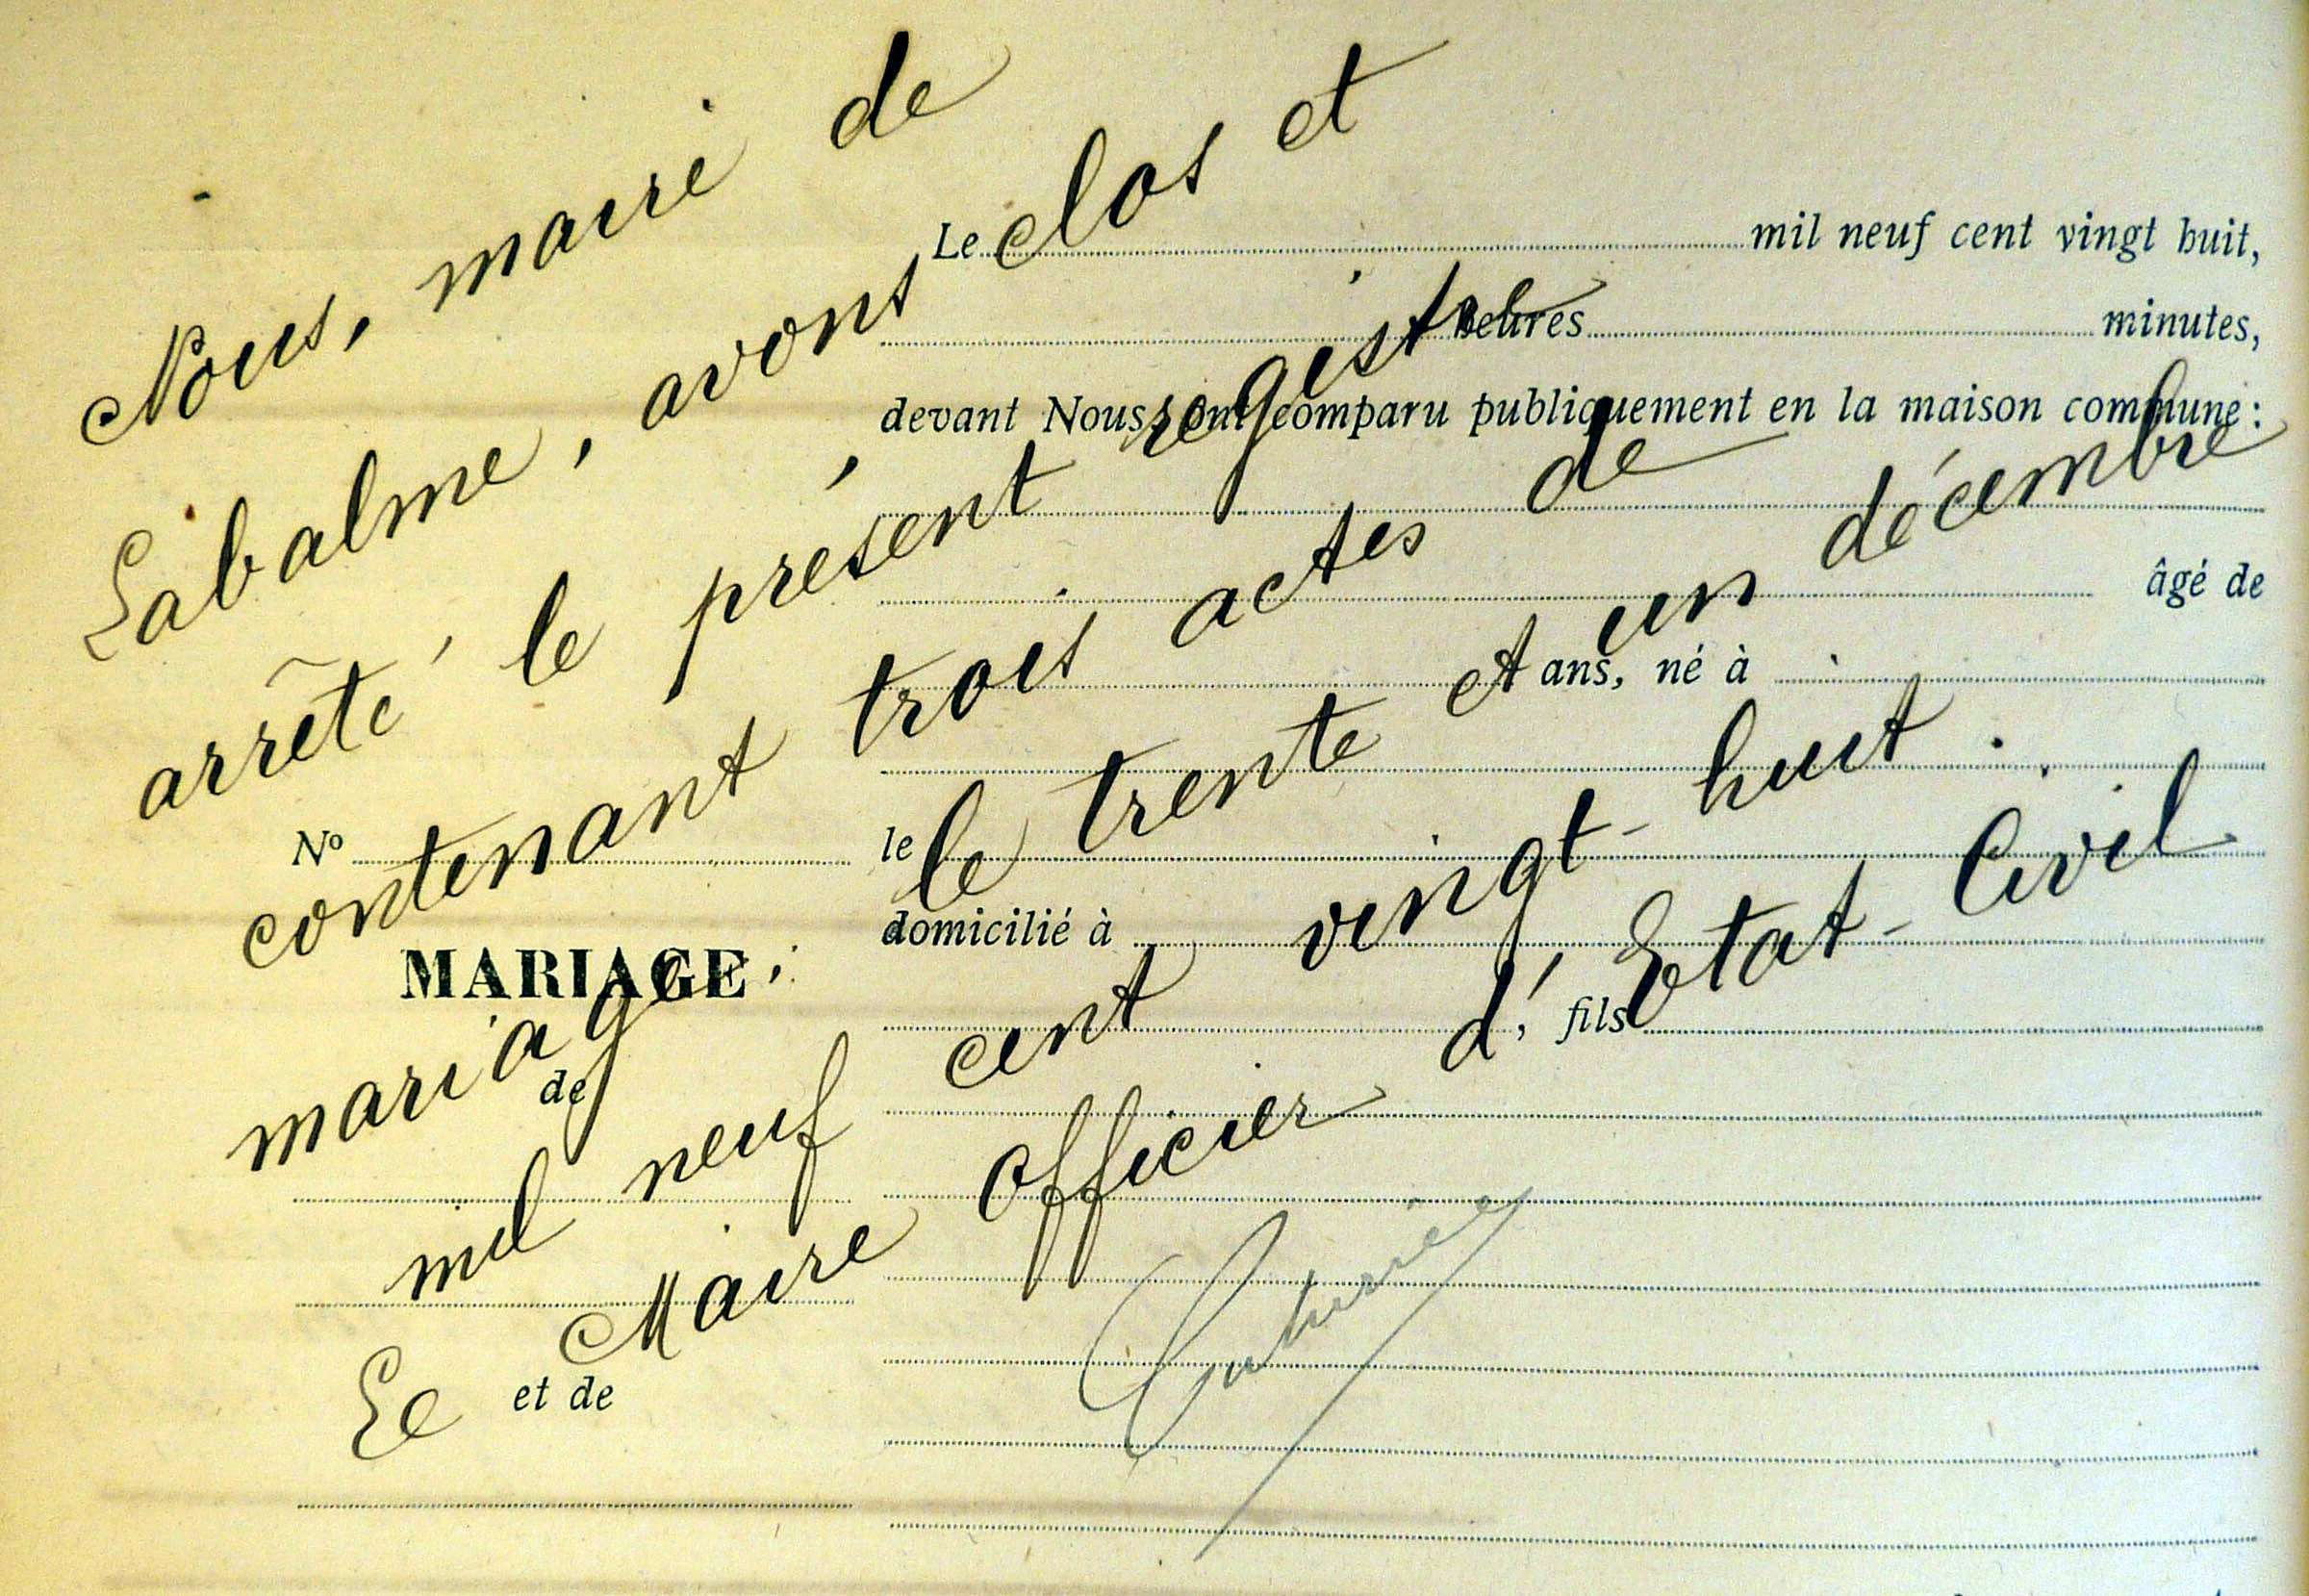 Nous, maire de
Labalme, avons clos et
arrêté le présent registre
contenant trois actes de
mariage, le trente et un décembre
mil neuf cent vingt-huit.
Le Maire officier d'Etat-Civil
Le mil neuf cent vingt huit,
heures minutes,
devant Nous ont comparu publiquement en la maison commune:
âgé de
ans, né à
le
domicilié à
, fils
No
MARIAGE
de
et de